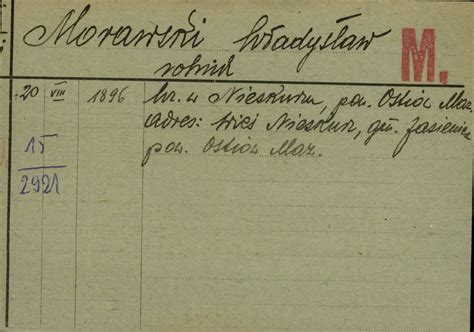 Morawski Władysław
rolnik
M.
20 VIII 1896 br. w Nieskurzu, pow. Ostrów Maz.
adres: wieś Nieskurz, gm. Jasienica
pow. Ostrów Maz.
15
2921